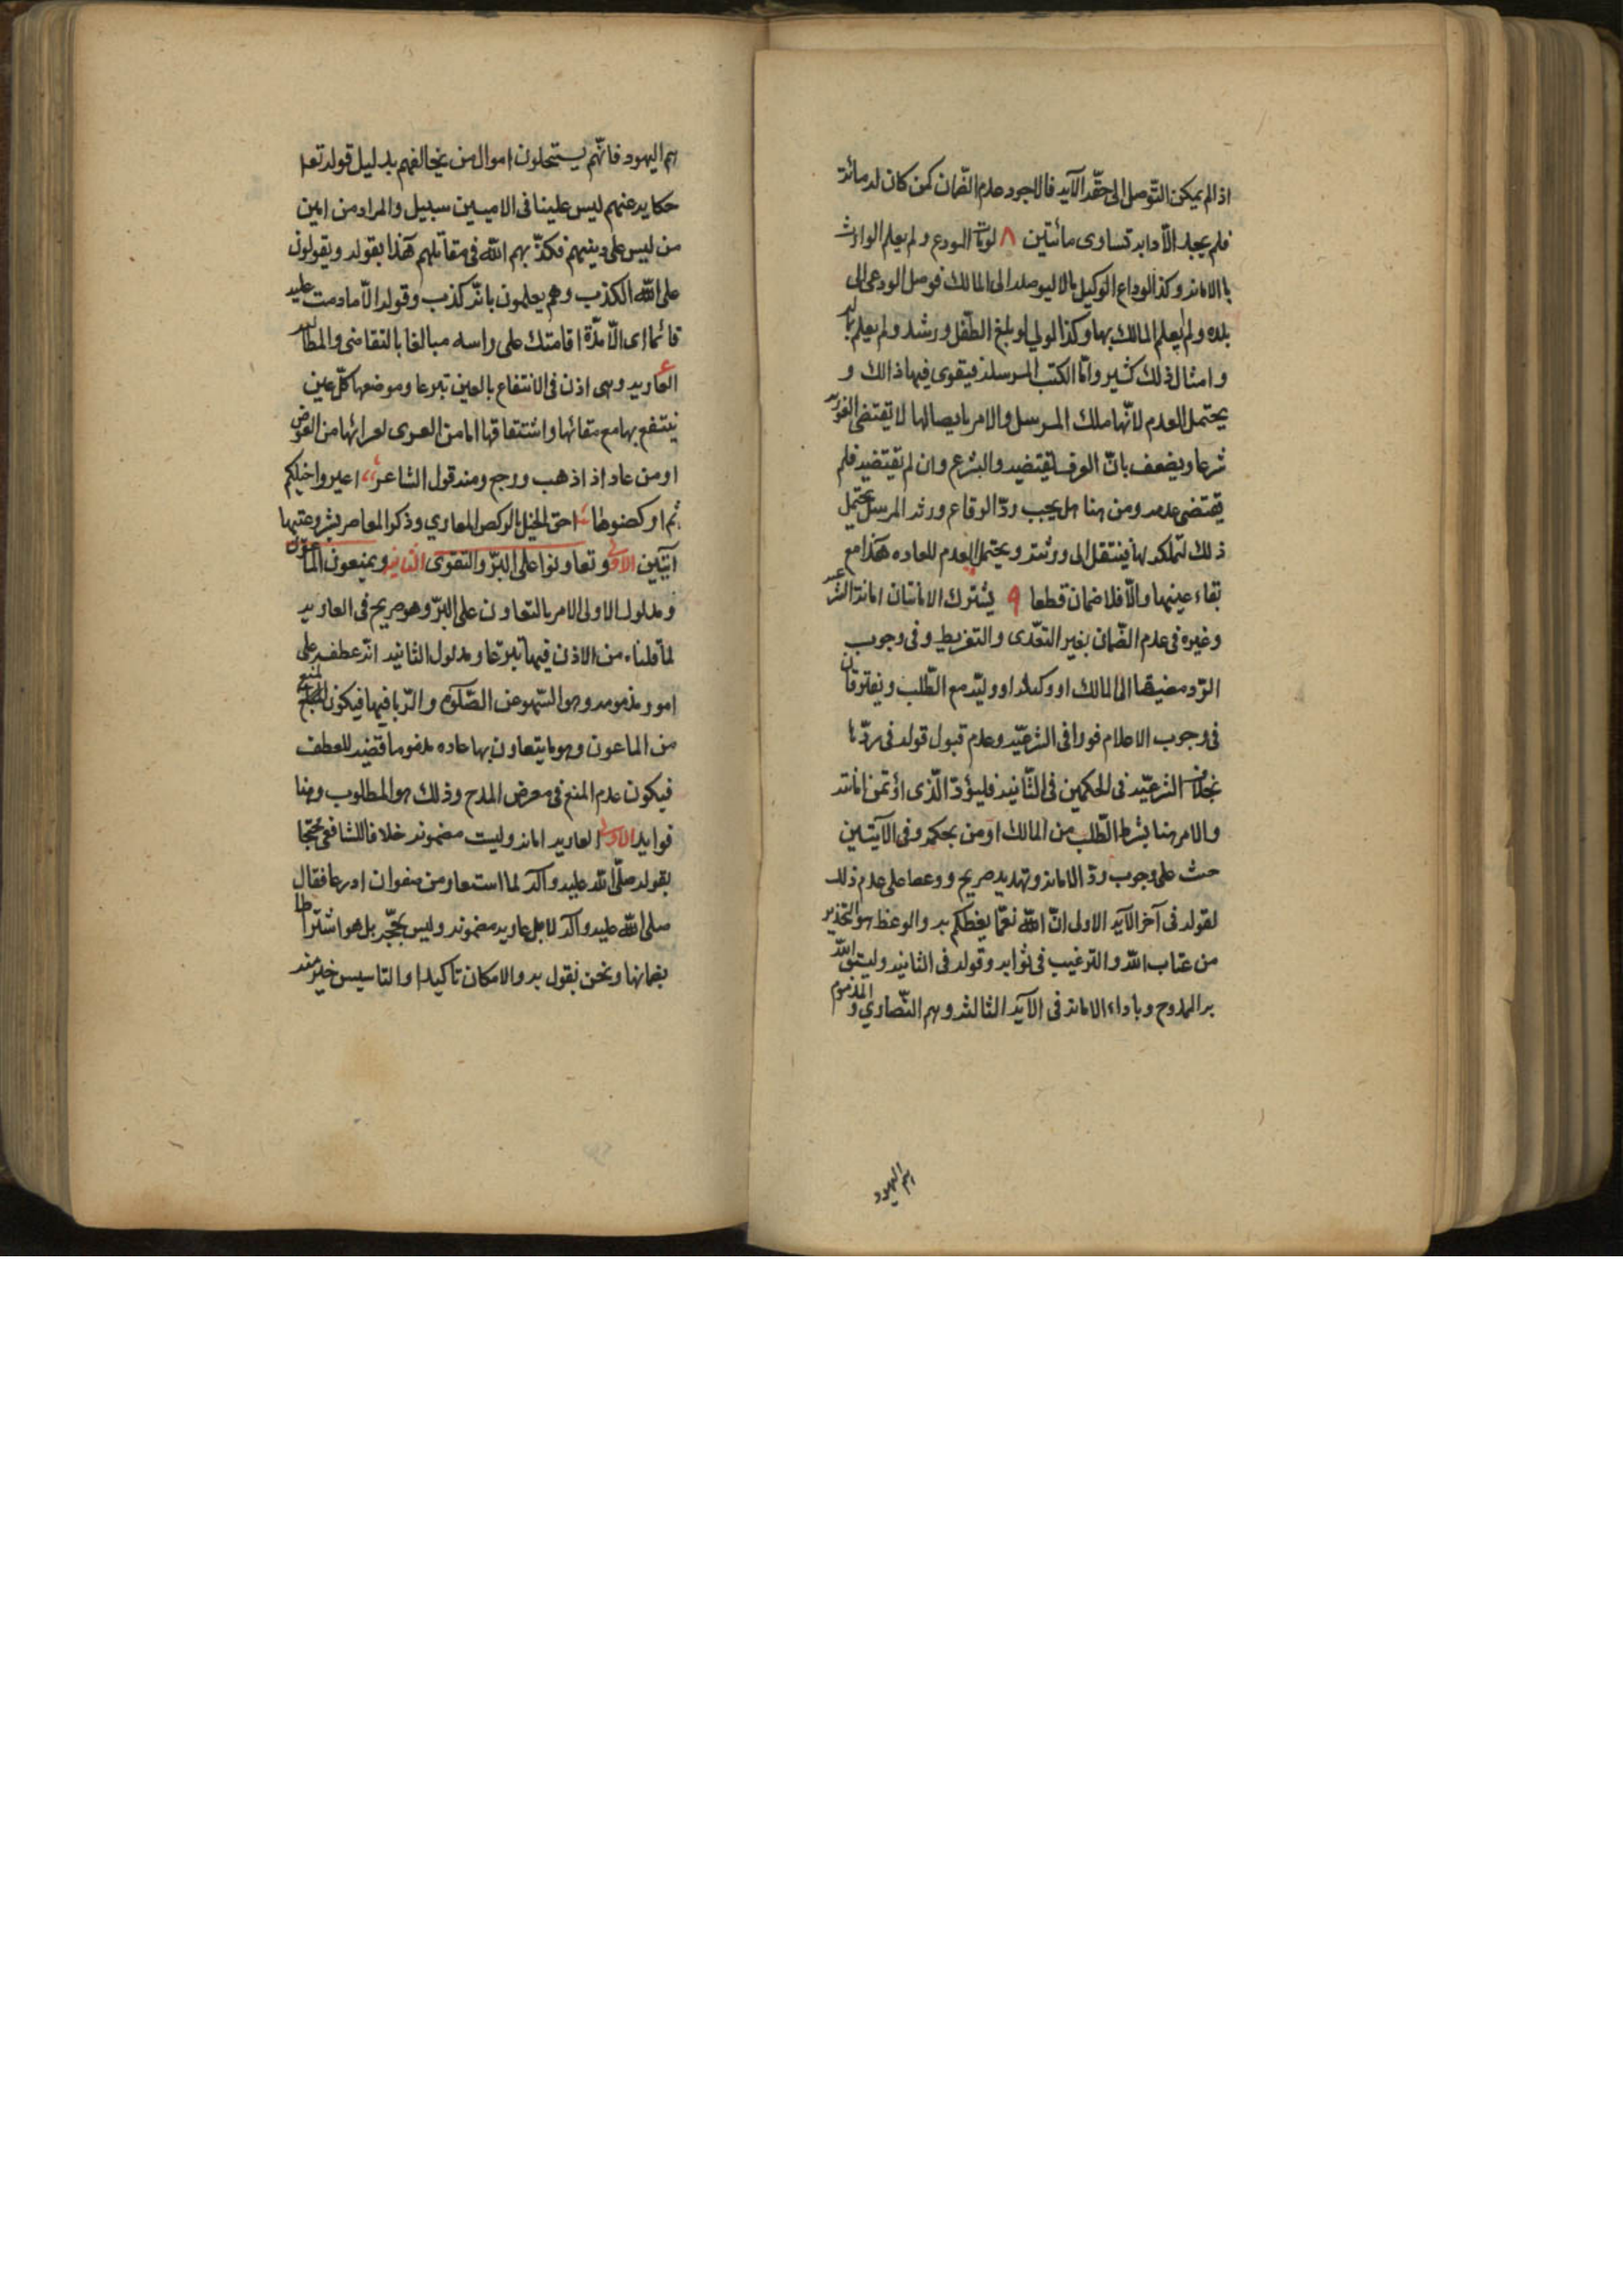 اذا لم يمكن التّوصل الى حقّه الّا به فالاجود عدم الضّمان كمن كان له مائة
فلم يجد الّا دابه تساوى مائتين ٨ لو مات المودع ولم يعلم الوارث
با الامانه وكذا لو داع الوكيل مالا ليوصله الى المالك فوصل المودعى الى
بلده ولم يعلم المالك بها وكذا الولي لو بلغ الطّفل ورشد ولم يعلم بماله
وامثال ذلك كثير وامّا الكتب المرسله فيقوى فيها ذالك و
يحتمل العدم لانّها ملك المرسل والامر بايصالها لا تقتضى الفوريه
شرعا ويضعف بانّ العرف يقتضيه والشرع وان لم يقتضيه فلم
يقتضى عدمه ومن هنا هل يجب ردّ الرقاع ورثه المرسل يحتمل
ذلك لتملكه لها فينتقل الى ورثته ويحتمل العدم للعاده هذا مع
بقاء عينها والّا فلا ضمان قطعا ٩ يشترك الامانتان امانة الشرعيه
وغيره فى عدم الضّمان بغير التعدّى والتفريط وفى وجوب
الرّد مضيقا الى المالك او وكيله او وليّه مع الطّلب ويفترقان
فى وجوب الاعلام فورا فى الشرعيّه وعدم قبول قوله فى ردّها
بخلاف الشرعيّه فى الحكمين فى الثّانيه فليؤدّ الّذى اؤتمن امانته
والامر هنا بشرط الطّلب من المالك او من بحكمه وفى الآيتين
حث على وجوب ردّ الامانه وتهديد صريح ووعصا على عدم ذلك
لقوله فى آخر الآيه الاولى انّ الله نعمّا يعظكم به والوعظ هو التحذير
من عتاب الله والترغيب فى ثوابه وقوله فى الثانيه وليتق الله
بر الممدوح وباداء الامانه فى الآيه الثالثه وهم النّصاري والمذموم
هم اليهود
هم اليهود فانّهم يستحلون اموال من يخالفهم بدليل قوله تعا
حكايه عنهم ليس علينا فى الاميين سبيل والمراد من اميين
من ليس على دينهم فكذّبهم الله فى مقاتلهم هذا بقوله ويقولون
على الله الكذب وهم يعلمون بانّه كذب وقوله الّا ما دمت عليه
قائما اى الّا مدّة اقامتك على راسه مبالغا بالتقاضى والمطالبه
العاريه وهى اذن فى الانتفاع بالعين تبرعا وموضعها كلّ عين
ينتفع بها مع بقائها واشتقاقها اما من العرى لعرائها من العوض
او من عاد اذا ذهب ورجع ومنه قول الشاعر اعيروا خيلكم
ثم اركضوها احق الخيل بالركص المعاري وذكر المعاصر بشر وعيتها
آيتين الاولى وتعاونوا على البرّ والتقوى الثانيه ويمنعون الماعون
ومدلول الاولى الامر بالتعاون على البرّ وهو صريح فى العاريه
لما قلناه من الاذن فيها تبرّعا ومدلول الثانيه انّه عطف على
امور مذمومه وهو السّهو عن الصّلوة والرّيا فيها فيكون المنع
من الماعون وهو ما يتعاون بها عاده مذموما قضيه للعطف
فيكون عدم المنع فى معرض المدح وذلك هو المطلوب وهنا
فوايد الاولى العاريه امانه وليست مضمونه خلافا للشافعى محتجا
بقوله صلّى الله عليه وآله لما استعار من صفوان ادرعا فقال
صلى الله عليه وآله لا بل عاريه مضمونه وليس بحجّه بل هو اشتراط
بضمانها ونحن نقول به والامكان تاكيدا او التاسيس خير منه